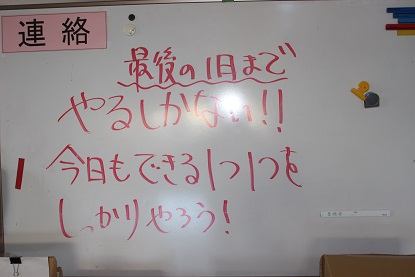 連絡
最後の1日まで
やるしかない!!
今日もできる1つ1つを
しっかりやろう!